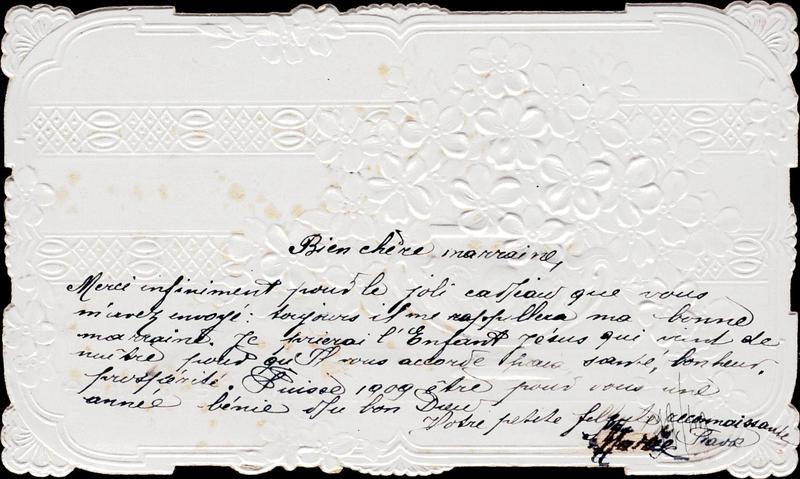 Bien chère marraine,
Merci infiniment pour le joli cadeau que vous
m'avez envoyé: toujours il me rappellera ma bonne
marraine. Je prierai l'Enfant Jésus qui vient de
naître pour qu'Il vous accorde paix, santé, bonheur,
prospérité. Puisse 1909 être pour vous une
année bénie du bon Dieu
Votre petite filleule reconnaissante
Marie